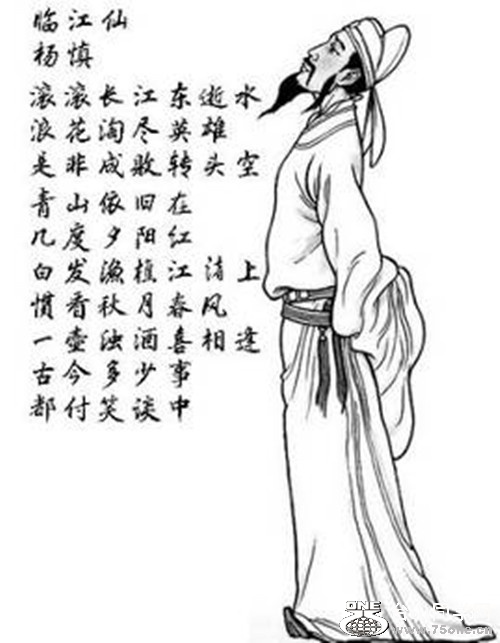 临江仙
杨慎
滚滚长江东逝水
浪花淘尽英雄
是非成败转头空
青山依旧在
几度夕阳红
白发渔樵江渚上
惯看秋月春风
一壶浊酒喜相逢
古今多少事
都付笑谈中
ONE
www.75one.cn